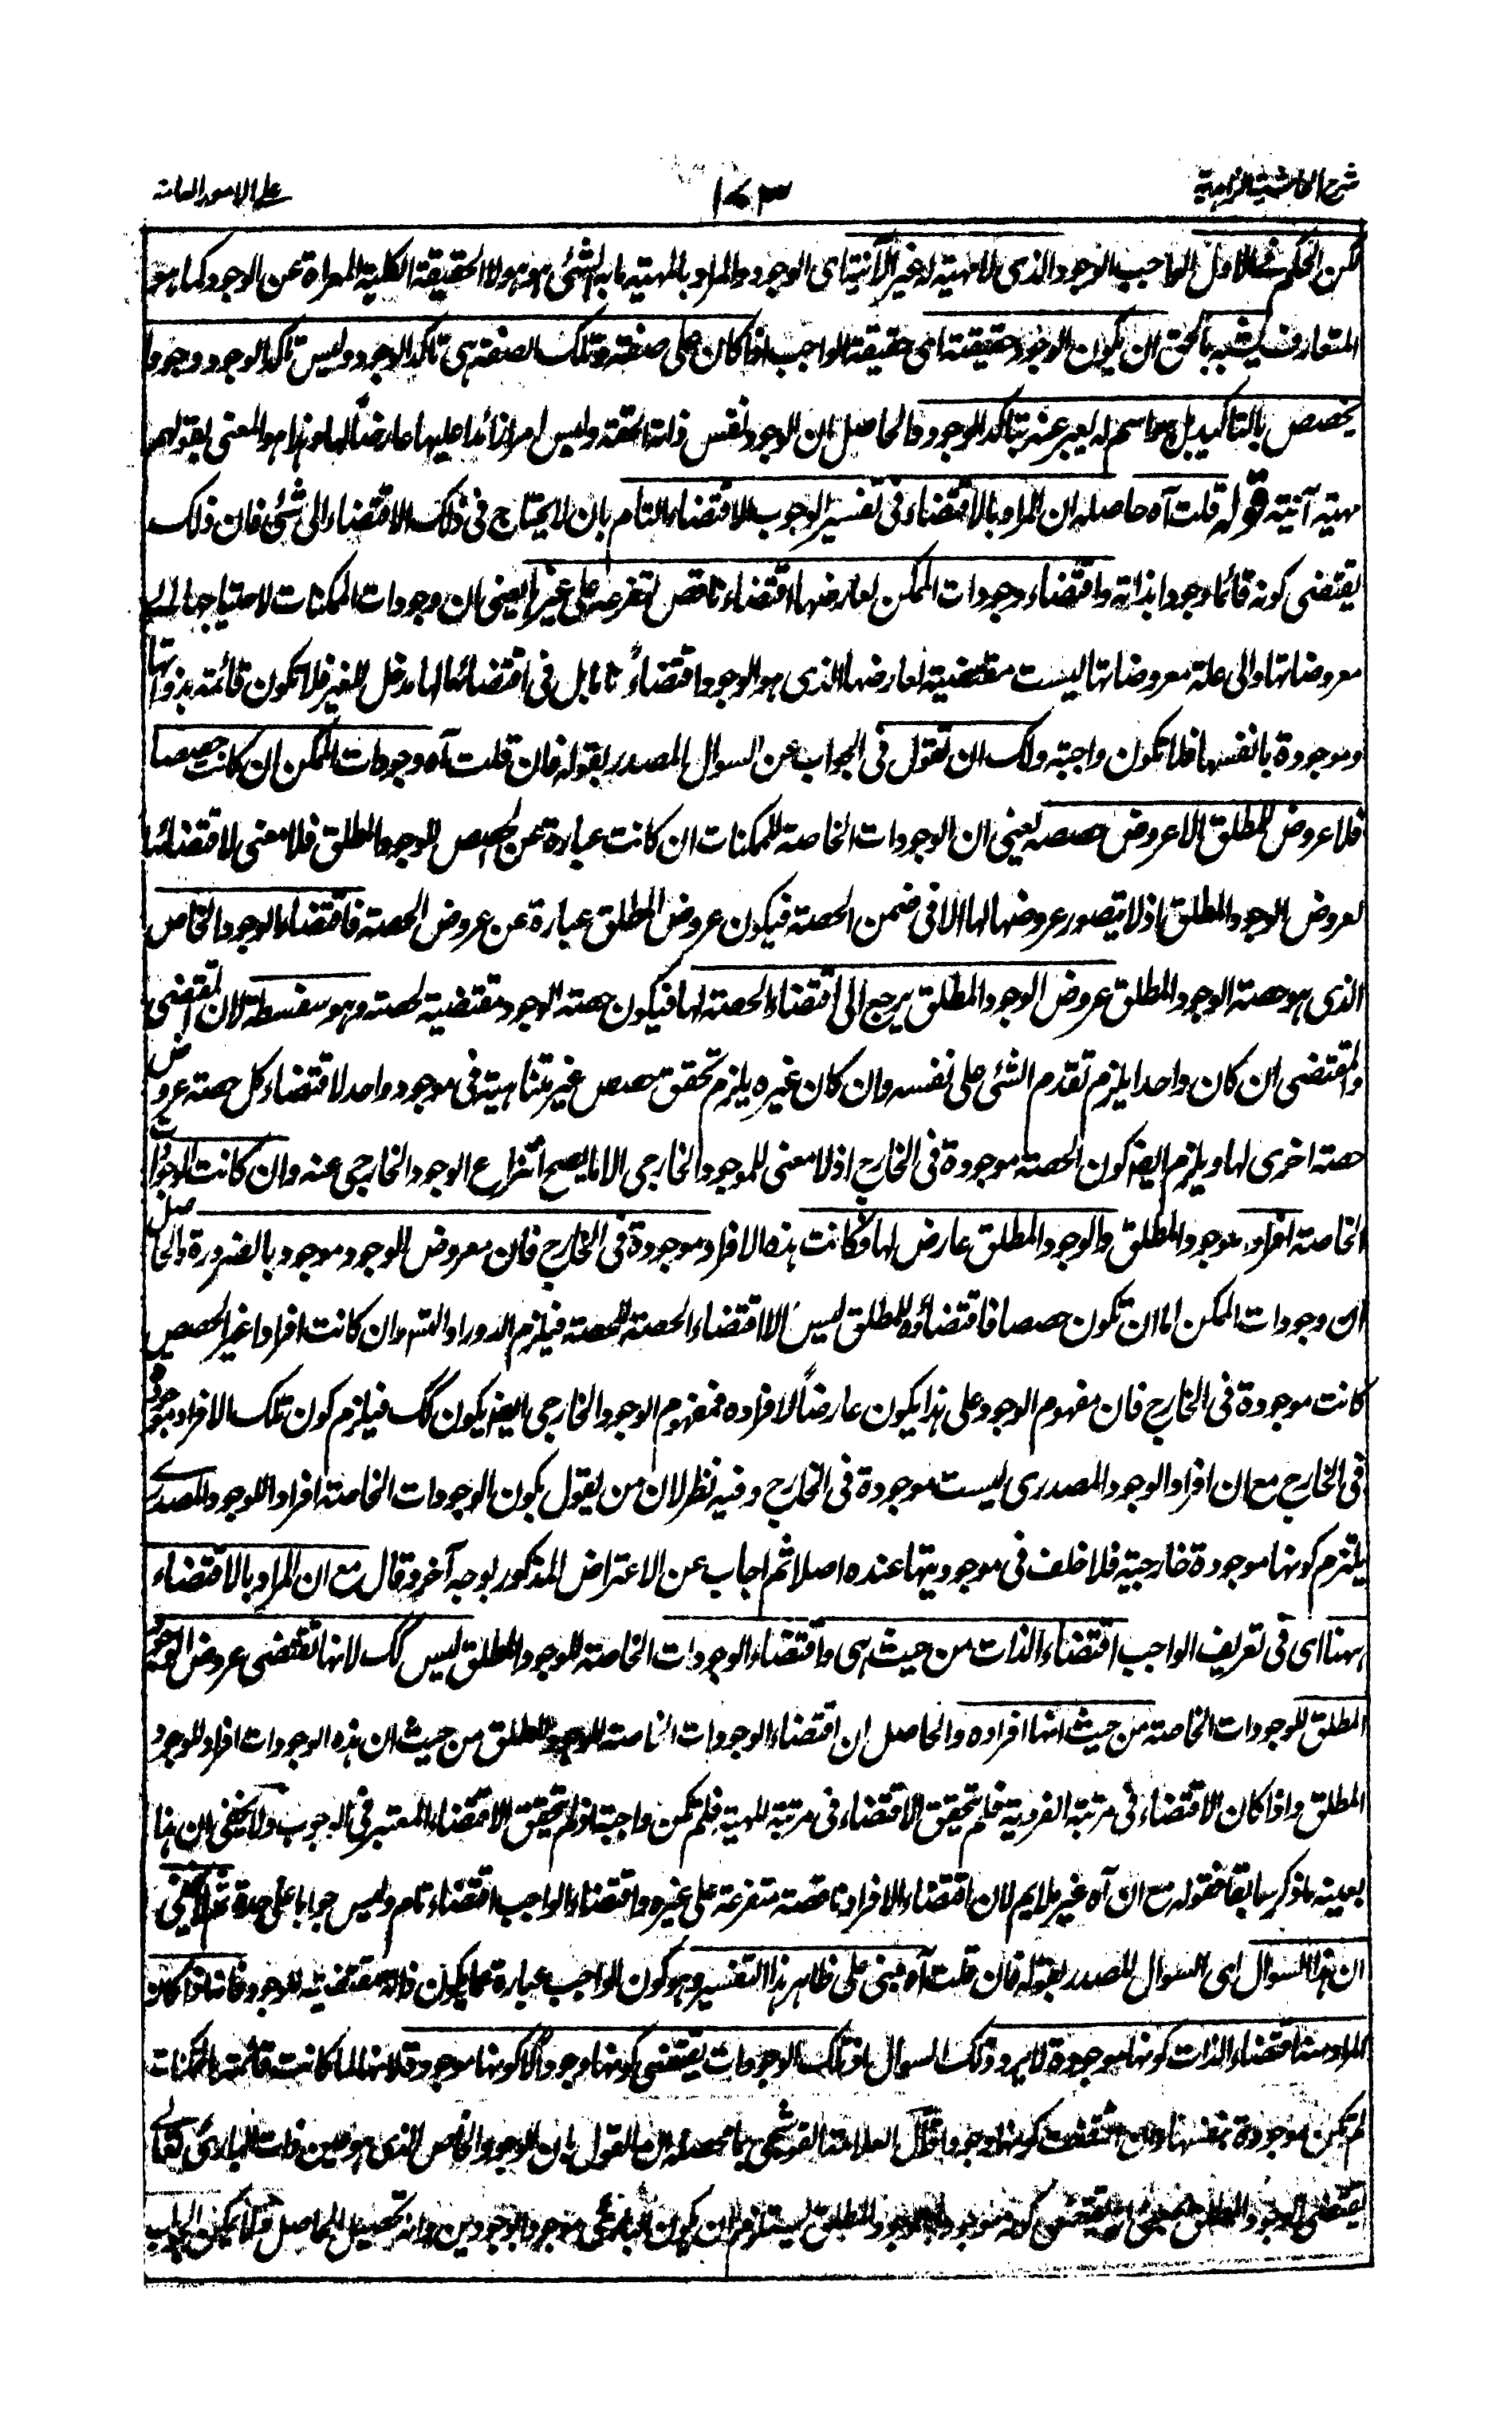 شرح الحاشية الزاهدية
١٧٣
على الامور العامة
لكن الحكم الاول الواجب الوجود الذى لا مهية له غير الآنية اى الوجود والمراد بالمهية ما به الشئى هو هو لا الحقيقة الكلية المعراة عن الوجود كما هو
المتعارف يشبه بالحق ان يكون الوجود حقيقته اى حقيقة الواجب اذا كان على صفة وتلك الصفة هى تاكد الوجود وليس تاكد الوجود وجودا
يخصص بالتاكيد بل هو اسم له يعبر عنه بتاكد الوجود والحاصل ان الوجود نفس ذاته الحقة وليس امرا زائدا عليها عارضا لها وهذا هو المعنى بقولهم
مهية آنية قوله قلت آه حاصله ان المراد بالاقتضاء فى تفسير الوجوب الاقتضاء التام بان لا يحتاج فى ذلك الاقتضاء الى شئى فان ذلك
يقتضى كونه قائما وجودا بذاته واقتضاء وجودات الممكن لعارضها اقتضاء ناقص لتفرعه على غيرها يعنى ان وجودات الممكنات لاحتياجها الى
معروضاتها والى علة معروضاتها ليست مقتضية لعارضها الذى هو الوجود اقتضاءً تاما بل فى اقتضائها لها مدخل للغير فلا تكون قائمة بذواتها
وموجودة بانفسها فلا تكون واجبة ولك ان تقول فى الجواب عن السوال المصدر بقوله فان قلت آه وجودات الممكن ان كانت حصصا
فلا عروض للمطلق الا عروض حصصه يعنى ان الوجودات الخاصة للممكنات ان كانت عبارة عن الحصص للوجود المطلق فلا معنى لاقتضائها
لعروض الوجود المطلق اذ لا يتصور عروضها لها الا فى ضمن الحصة فيكون عروض المطلق عبارة عن عروض الحصة فاقتضاء الوجود الخاص
الذى هو حصة الوجود المطلق عروض الوجود المطلق يرجع الى اقتضاء الحصة لها فيكون حصة الوجود مقتضية لحصة وهو سفسطة لان المقتضى
والمقتضى ان كان واحدا يلزم تقدم الشئى على نفسه وان كان غيره يلزم تحقق حصص غير متناهية فى موجود واحد لاقتضاء كل حصة عروض
حصة اخرى لها ويلزم ايضا كون الحصة موجودة فى الخارج اذ لا معنى للموجود الخارجى الا ما يصح انتزاع الوجود الخارجى عنه وان كانت الوجودات
الخاصة افراد الوجود المطلق والوجود المطلق عارض لها فكانت هذه الافراد موجودة فى الخارج فان معروض الوجود موجود بالضرورة والحاصل
ان وجودات الممكن اما ان تكون حصصا فاقتضاؤه للمطلق ليس الا اقتضاء الحصة للحصة فيلزم الدور او التسلسل وان كانت افرادا غير الحصص
كانت موجودة فى الخارج فان مفهوم الوجود على هذا يكون عارضاً لافراده فمفهوم الوجود الخارجى ايضا يكون كك فيلزم كون تلك الافراد موجودة
فى الخارج مع ان افراد الوجود المصدرى ليست موجودة فى الخارج وفيه نظر لان من يقول بكون الوجودات الخاصة افرادا للوجود المصدرى
يلتزم كونها موجودة خارجية فلا خلف فى موجوديتها عنده اصلا ثم اجاب عن الاعتراض المذكور بوجه آخر وقال مع ان المراد بالاقتضاء
ههنا اى فى تعريف الواجب اقتضاء الذات من حيث هى واقتضاء الوجودات الخاصة للوجود المطلق ليس كك لانها تقتضى عروض الوجود
المطلق للوجودات الخاصة من حيث انها افراده والحاصل ان اقتضاء الوجودات الخاصة للوجود المطلق من حيث ان هذه الوجودات افراد للوجود
المطلق واذا كان الاقتضاء فى مرتبة الفردية فلم تحقق الاقتضاء فى مرتبة المهية فلم تكن واجبة اذ لم تحقق الاقتضاء المعتبر فى الوجوب ولا يخفى ان هذا
بعينه ما ذكر سابقا فقوله مع ان آه غير ملايم لان اقتضاء الافراد ناقصة متفرعة على غيره واقتضاء الواجب اقتضاء تام وليس جوابا على حدة ثم لا يخفى
ان هذا السوال اى السوال المصدر بقوله فان قلت آه مبنى على ظاهر هذا التفسير وهو كون الواجب عبارة عما يكون ذاته مقتضية للوجود فاما اذا كان
المراد منه اقتضاء الذات كونها موجودة لا يرد ذلك السوال اذ تلك الوجودات يقتضى كونها وجوداً لا كونها موجودة لانها لما كانت قائمة بالممكنات
لم تكن موجودة بنفسها وان اقتضت كونها وجودا قال العلامة القوشجى ما محصله ان القول بان الوجود الخاص الذى هو عين ذات البارئ تعالى
يقتضى الوجود المطلق بمعنى انه يقتضى كونه موجودا بالوجود المطلق يستلزم ان يكون البارئ موجودا بوجودين وانه تحصيل الحاصل ولا يمكن الجواب